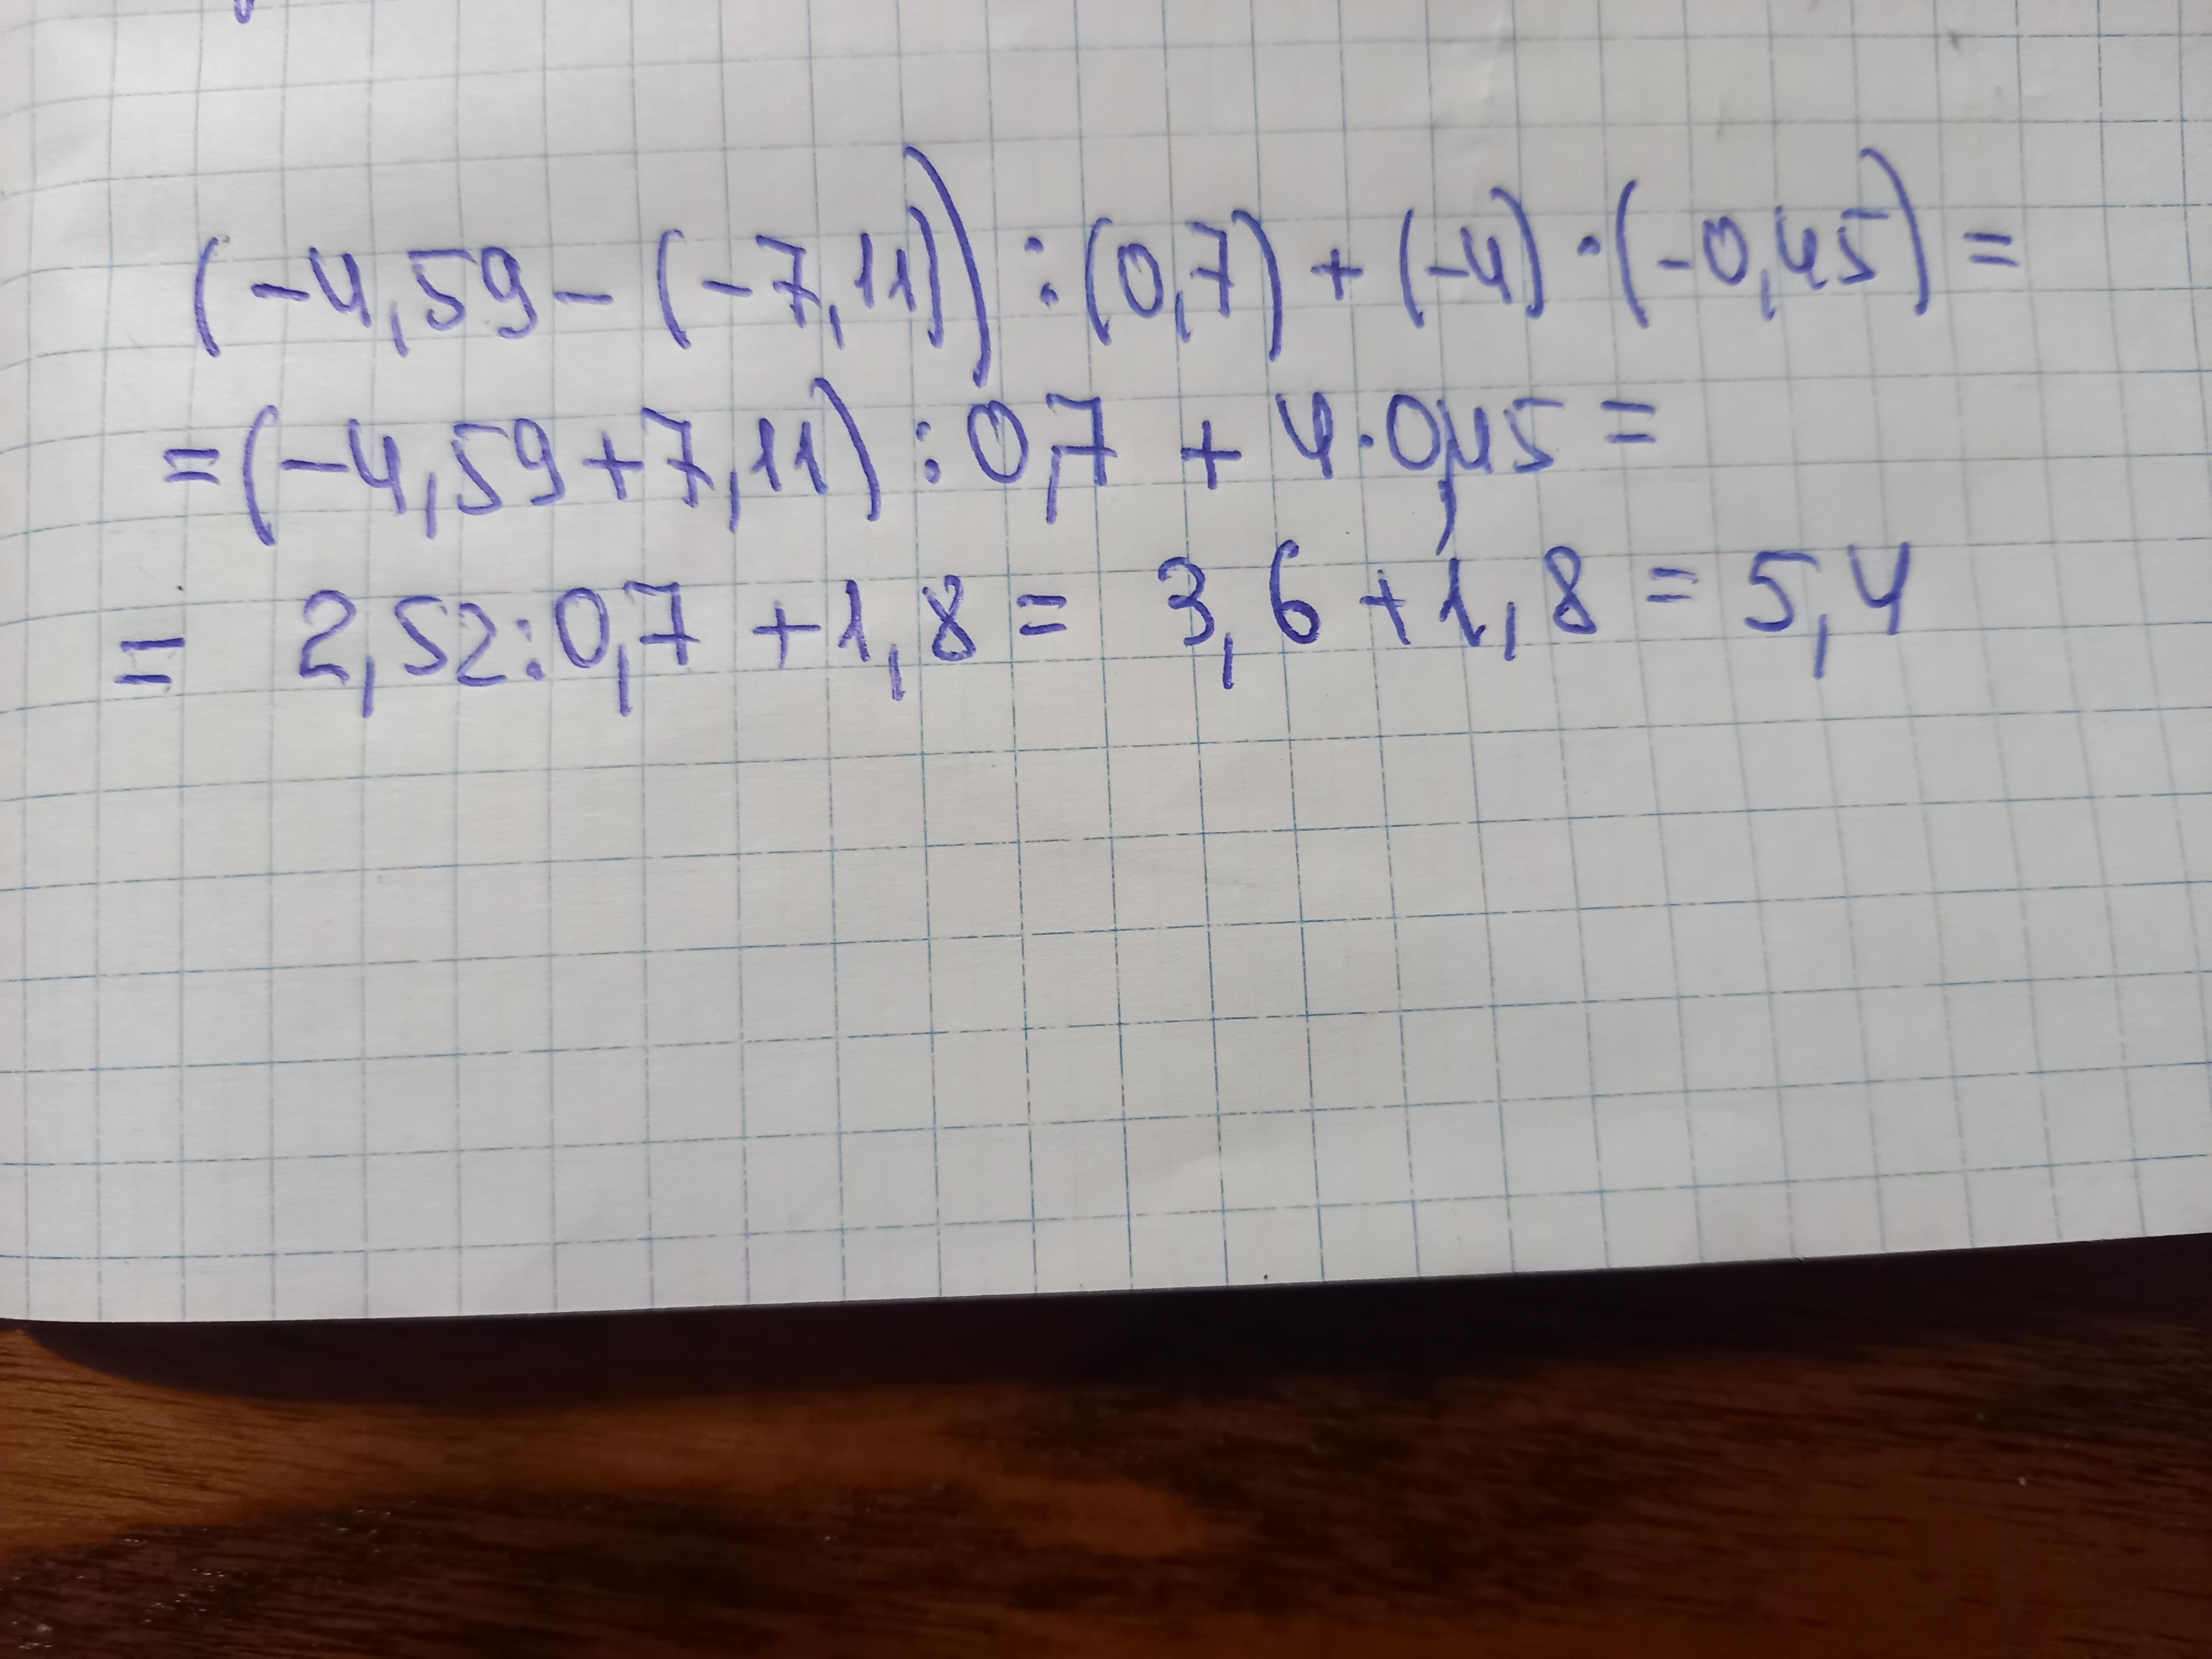 (-4,59-(-7,11)):(0,7)+(-4)·(-0,45)=
=(-4,59+7,11):0,7+4·0,45=
=2,52:0,7+1,8=3,6+1,8=5,4